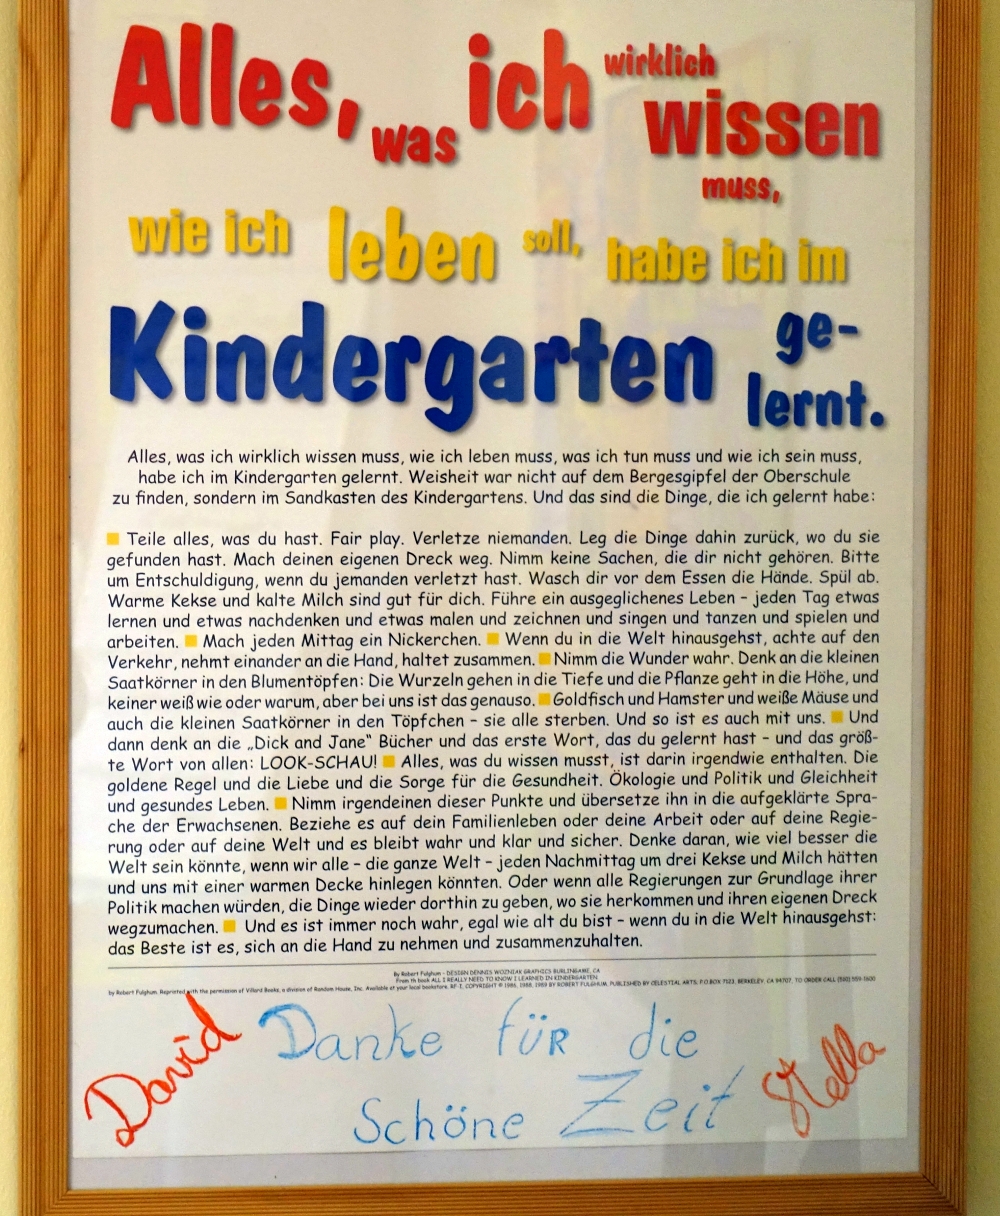 Alles, was ich wirklich wissen muss,
wie ich leben soll, habe ich im
Kindergarten ge-
lernt.
Alles, was ich wirklich wissen muss, wie ich leben muss, was ich tun muss und wie ich sein muss,
habe ich im Kindergarten gelernt. Weisheit war nicht auf dem Bergesgipfel der Oberschule
zu finden, sondern im Sandkasten des Kindergartens. Und das sind die Dinge, die ich gelernt habe:
■ Teile alles, was du hast. Fair play. Verletze niemanden. Leg die Dinge dahin zurück, wo du sie
gefunden hast. Mach deinen eigenen Dreck weg. Nimm keine Sachen, die dir nicht gehören. Bitte
um Entschuldigung, wenn du jemanden verletzt hast. Wasch dir vor dem Essen die Hände. Spül ab.
Warme Kekse und kalte Milch sind gut für dich. Führe ein ausgeglichenes Leben – jeden Tag etwas
lernen und etwas nachdenken und etwas malen und zeichnen und singen und tanzen und spielen und
arbeiten. ■ Mach jeden Mittag ein Nickerchen. ■ Wenn du in die Welt hinausgehst, achte auf den
Verkehr, nehmt einander an die Hand, haltet zusammen. ■ Nimm die Wunder wahr. Denk an die kleinen
Saatkörner in den Blumentöpfen: Die Wurzeln gehen in die Tiefe und die Pflanze geht in die Höhe, und
keiner weiß wie oder warum, aber bei uns ist das genauso. ■ Goldfisch und Hamster und weiße Mäuse und
auch die kleinen Saatkörner in den Töpfchen – sie alle sterben. Und so ist es auch mit uns. ■ Und
dann denk an die „Dick and Jane“ Bücher und das erste Wort, das du gelernt hast – und das größ-
te Wort von allen: LOOK-SCHAU! ■ Alles, was du wissen musst, ist darin irgendwie enthalten. Die
goldene Regel und die Liebe und die Sorge für die Gesundheit. Ökologie und Politik und Gleichheit
und gesundes Leben. ■ Nimm irgendeinen dieser Punkte und übersetze ihn in die aufgeklärte Spra-
che der Erwachsenen. Beziehe es auf dein Familienleben oder deine Arbeit oder auf deine Regie-
rung oder auf deine Welt und es bleibt wahr und klar und sicher. Denke daran, wie viel besser die
Welt sein könnte, wenn wir alle – die ganze Welt – jeden Nachmittag um drei Kekse und Milch hätten
und uns mit einer warmen Decke hinlegen könnten. Oder wenn alle Regierungen zur Grundlage ihrer
Politik machen würden, die Dinge wieder dorthin zu geben, wo sie herkommen und ihren eigenen Dreck
wegzumachen. ■ Und es ist immer noch wahr, egal wie alt du bist – wenn du in die Welt hinausgehst:
das Beste ist es, sich an die Hand zu nehmen und zusammenzuhalten.
By Robert Fulghum – DESIGN DENNIS WOZNIAK GRAPHICS BURLINGAME, CA
From th book ALL I REALLY NEED TO KNOW I LEARNED IN KINDERGARTEN
by Robert Fulghum. Reprinted with the permission of Villard Books, a division of Random House, Inc. Available at your local bookstore. COPYRIGHT © 1986, 1988, 1989 BY ROBERT FULGHUM. PUBLISHED BY CELESTIAL ARTS. P.O.BOX 7123, BERKELEY, CA 94707. TO ORDER CALL
David Danke für die
Schöne Zeit Stella